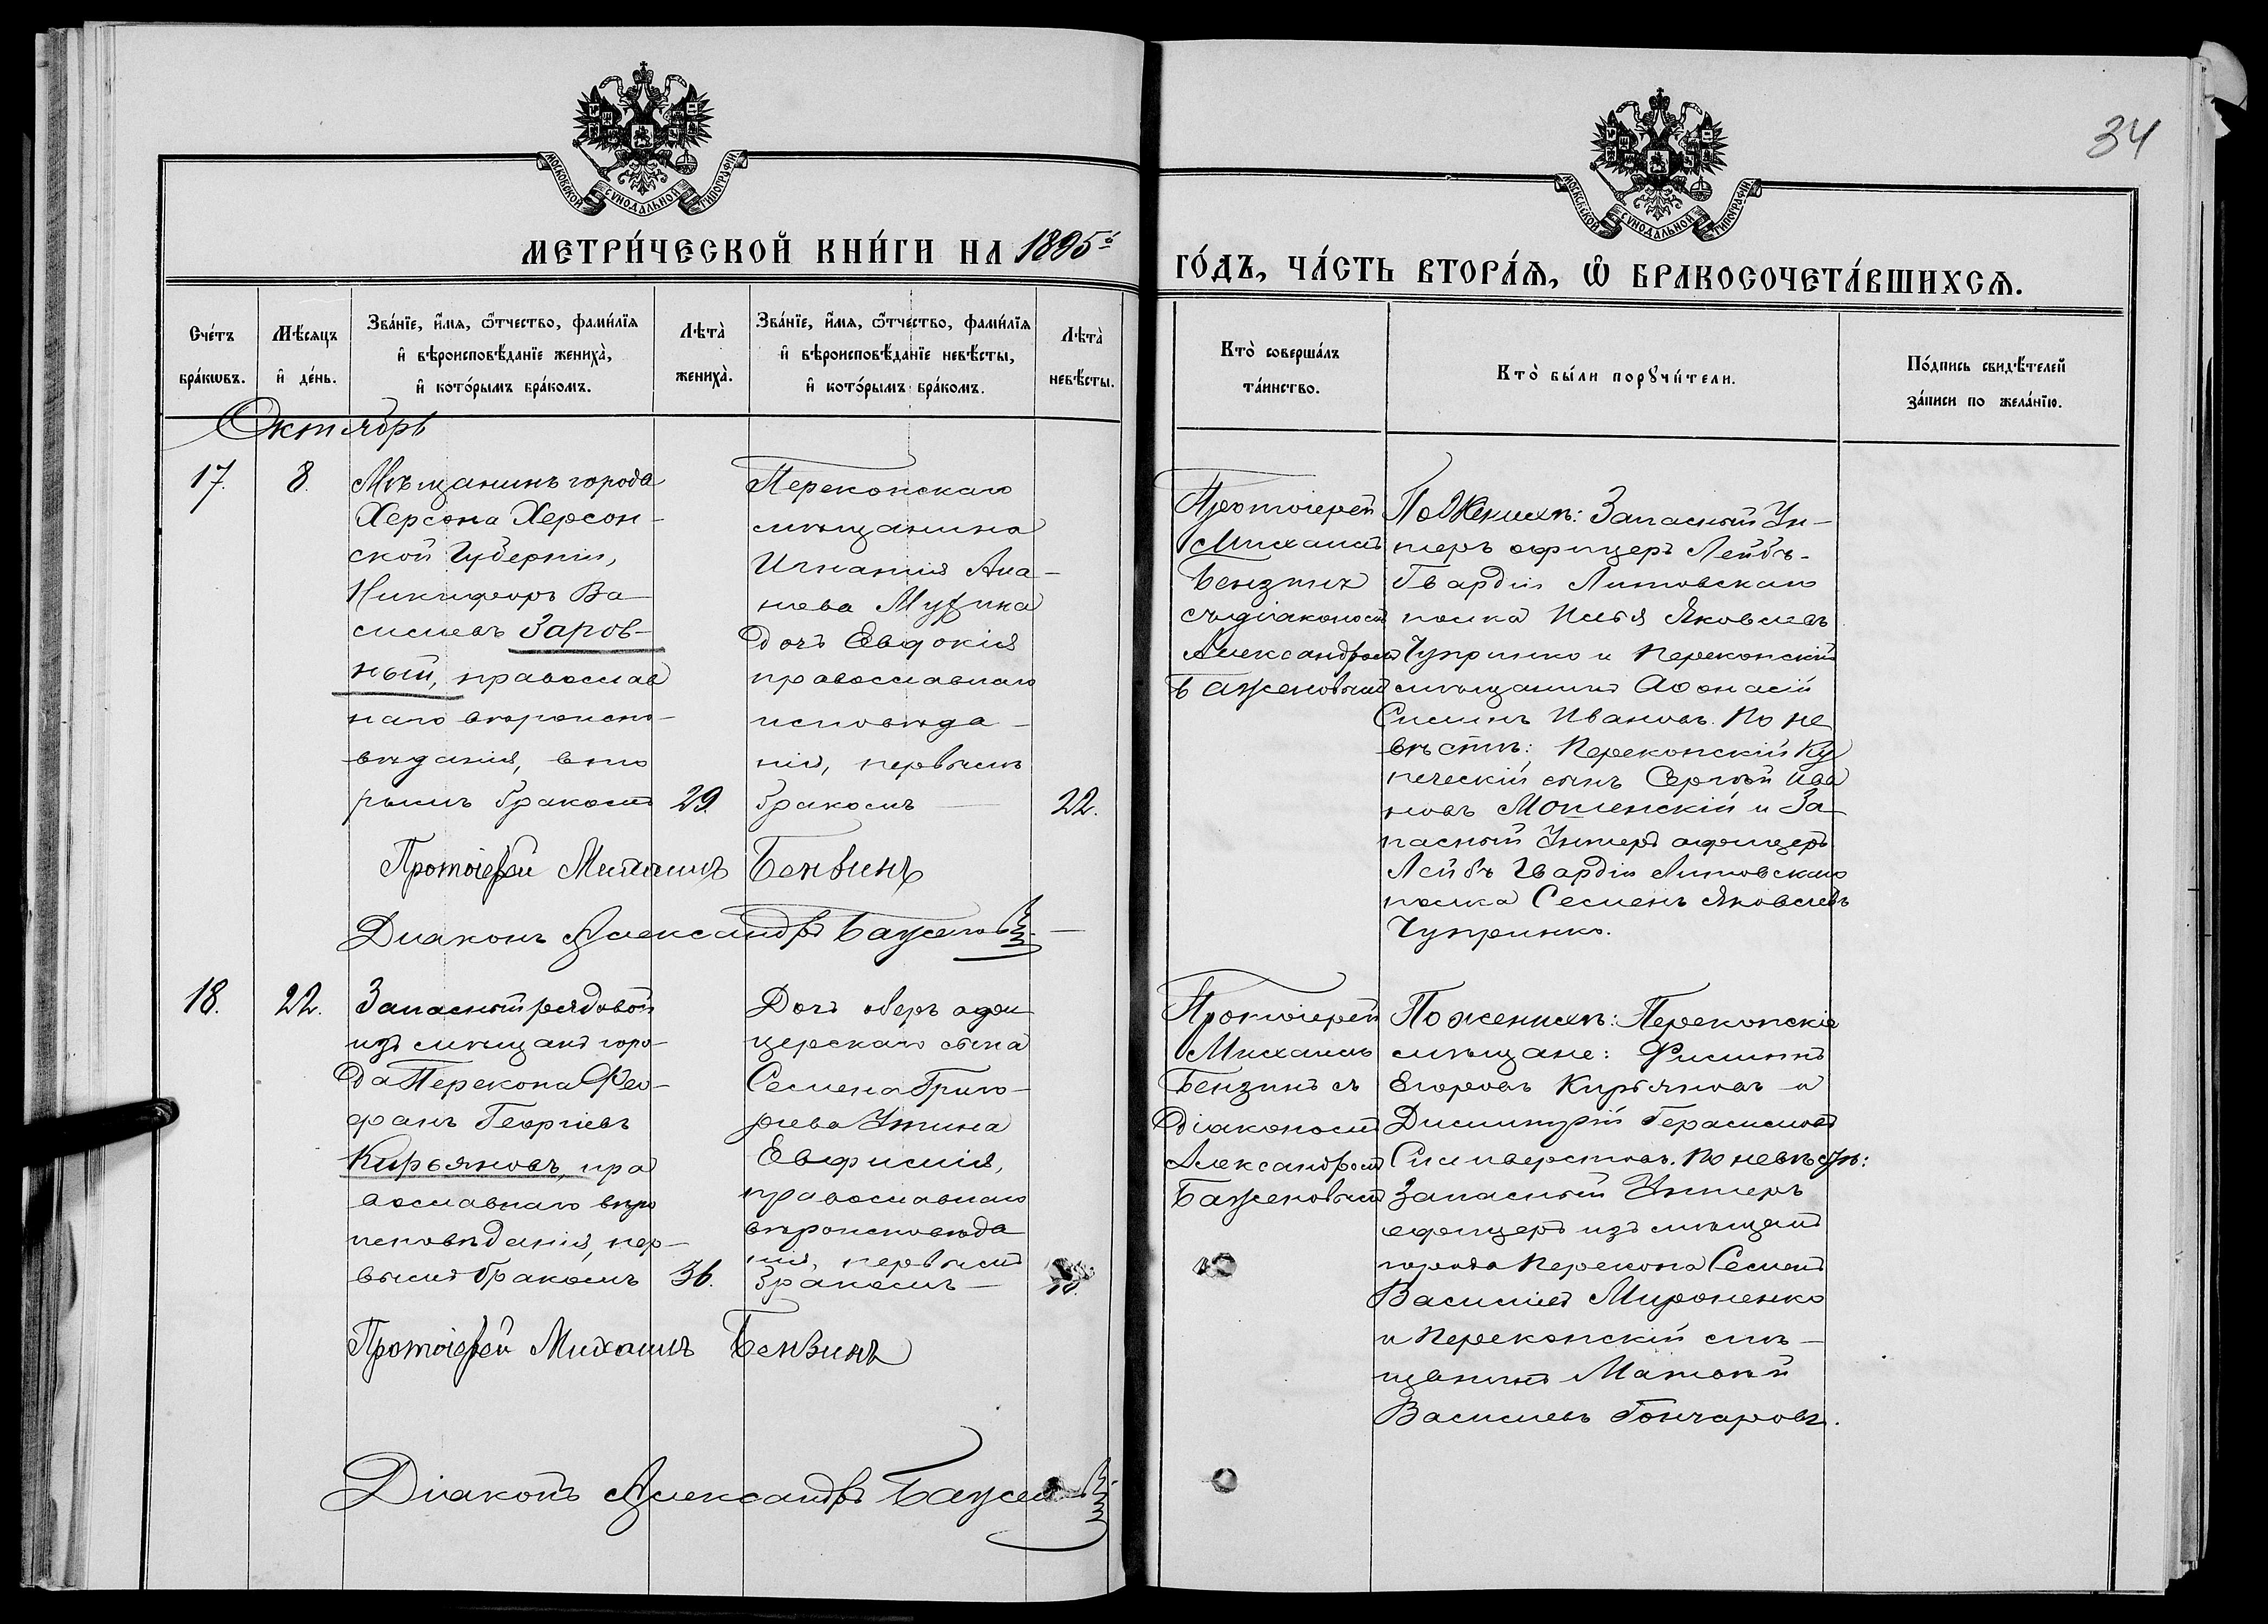 34
МОСКОВСКОЙ СѴНОДАЛЬНОЙ ТИПОГРАФІИ.
МОСКОВСКОЙ СѴНОДАЛЬНОЙ ТИПОГРАФІИ.
МЕТРИ́ЧЕСКОЙ КНИ́ГИ НА 1895й
ГО́ДЪ, ЧА́СТЬ ВТОРА́Ѧ, Ѡ҆ БРАКОСОЧЕТА́ВШИХСѦ.
Сче́тъ
бра́кωвъ.
Мѣ́сяцъ
и҆ де́нь.
Зва́нїе, и҆́мѧ, ѻ҆́тчество, фами́лїѧ
и҆ вѣроисповѣ́данїе жениха̀,
и҆ кото́рымъ бра́комъ.
Лѣта̀
жениха̀.
Зва́нїе, и҆́мѧ, ѻ҆́тчество, фами́лїѧ
и҆ вѣроисповѣ́данїе невѣ́сты,
и҆ кото́рымъ бра́комъ.
Лѣта̀
невѣ́сты.
Кто̀ соверша́лъ
та́инство.
Кто̀ бы́ли порꙋчи́тели.
По́дпись свидѣ́телей
за́писи по жела́нїю.
Октябрь
17.
8.
Мѣщанинъ города
Херсона Херсон-
ской Губерніи,
Никифоръ Ва-
сильевъ Заров-
ный, православ
наго вѣроиспо-
вѣданія, вто
рымъ бракомъ
29.
Перекопскаго
мѣщанина
Игнатія Ана-
ньева
дочь Евдокія
православнаго
исповѣда-
нія, первымъ
бракомъ
22.
Протоіерей
Михаилъ
Бензинъ
съ діакономъ
Александромъ
Баженовымъ
По Женихѣ: Запасный Ун-
теръ офицеръ Лейбъ-
Гвардіи Литовскаго
полка Илья Яковлевъ
Чупринко и Перекопскій
мѣщанинъ Аѳонасій
Ивановъ. По не
вѣстѣ: Перекопскій Ку
печескій сынъ Сергѣй Ива
новъ и За-
пасный Унтеръ офицеръ
Лейбъ Гвардіи Литовскаго
полка Семенъ Яковлевъ
Чупринко.
Протоіерей Михаилъ Бензинъ
Діаконъ Александръ Баженовъ
18.
22.
Запасный рядовой
изъ мѣщанъ горо-
да Перекопа Фео-
фанъ Георгіевъ
Кирьяновъ, пра
вославнаго вѣро
исповѣданія, пер-
вымъ бракомъ
36.
Дочь оберъ офи
церскаго сына
Семена Григо-
рьева
Евфимія,
православнаго
вѣроисповѣда
нія, первымъ
бракомъ
Протоіерей
Михаилъ
Бензинъ съ
діакономъ
Александромъ
Баженовымъ
По женихѣ: Перекопскіе
мѣщане: Филиппъ
Егоровъ Кирьяновъ и
Димитрій Герасимовъ
Силиверстовъ. По невѣстѣ:
Запасный Унтеръ
офицеръ изъ мѣщанъ
города Перекопа Семенъ
Васильевъ Мироненко
и Перекопскій мѣ-
щанинъ Матвѣй
Васильевъ Гончаровъ.
Протоіерей Михаилъ Бензинъ
Діаконъ Александръ Баженовъ